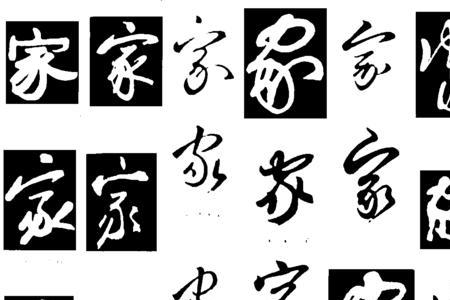 家 家 家 家 家
家 家 家 家 家